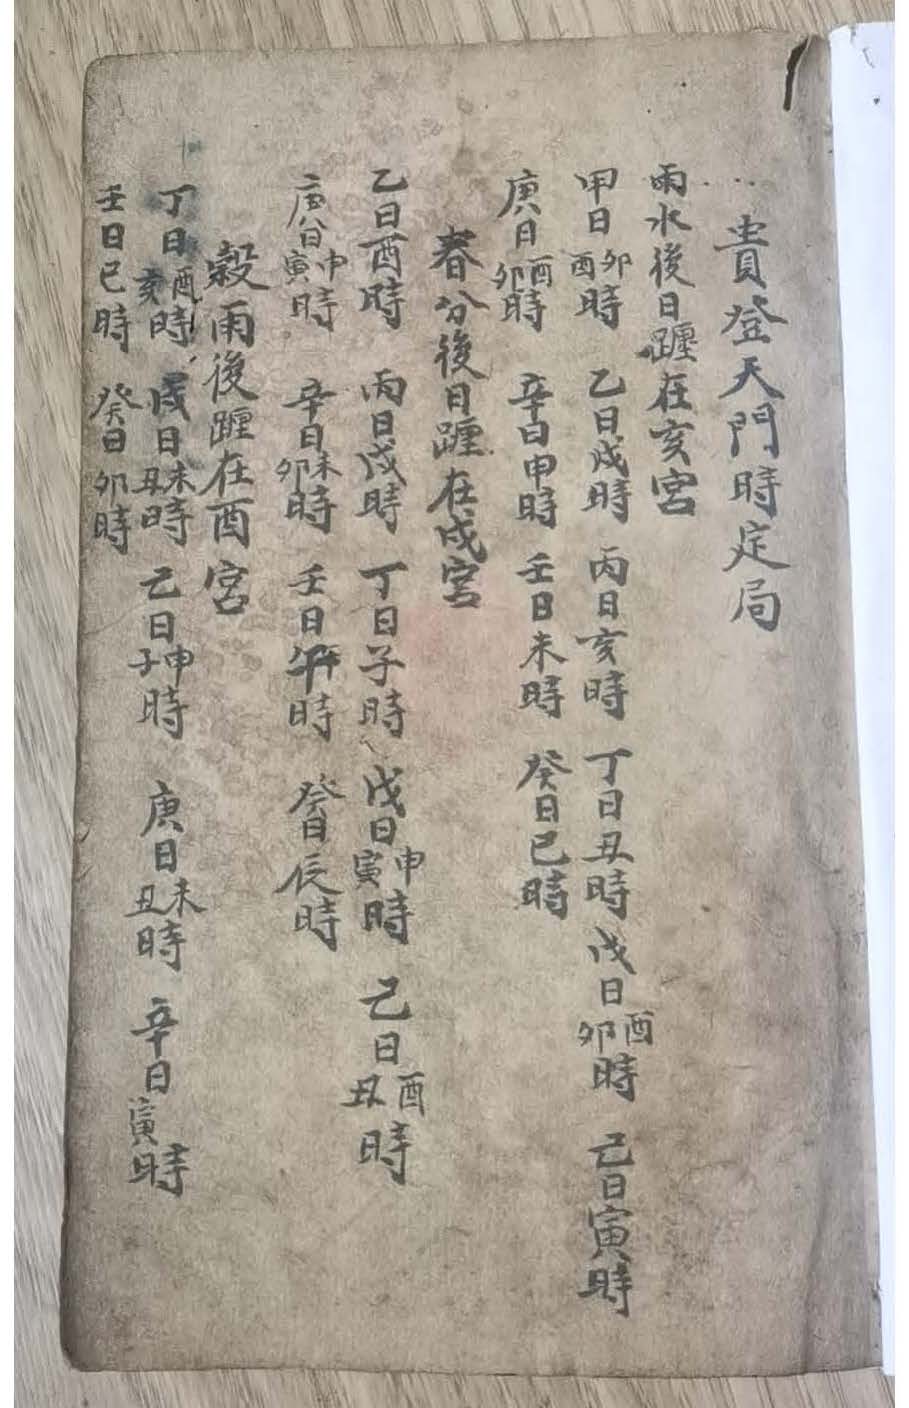 貴登天門時定局
雨水後日躔在亥宮
甲日卯酉時 乙日戌時 丙日亥時 丁日丑時 戊日酉卯時 己日寅時
庚日酉卯時 辛日申時 壬日未時 癸日巳時
春分後日躔在戌宮
乙日酉時 丙日戌時 丁日子時 戊日申寅時 己日酉丑時
庚日申寅時 辛日未卯時 壬日午時 癸日辰時
穀雨後躔在酉宮
丁日酉亥時 戊日未丑時 己日申子時 庚日未丑時 辛日寅時
壬日巳時 癸日卯時